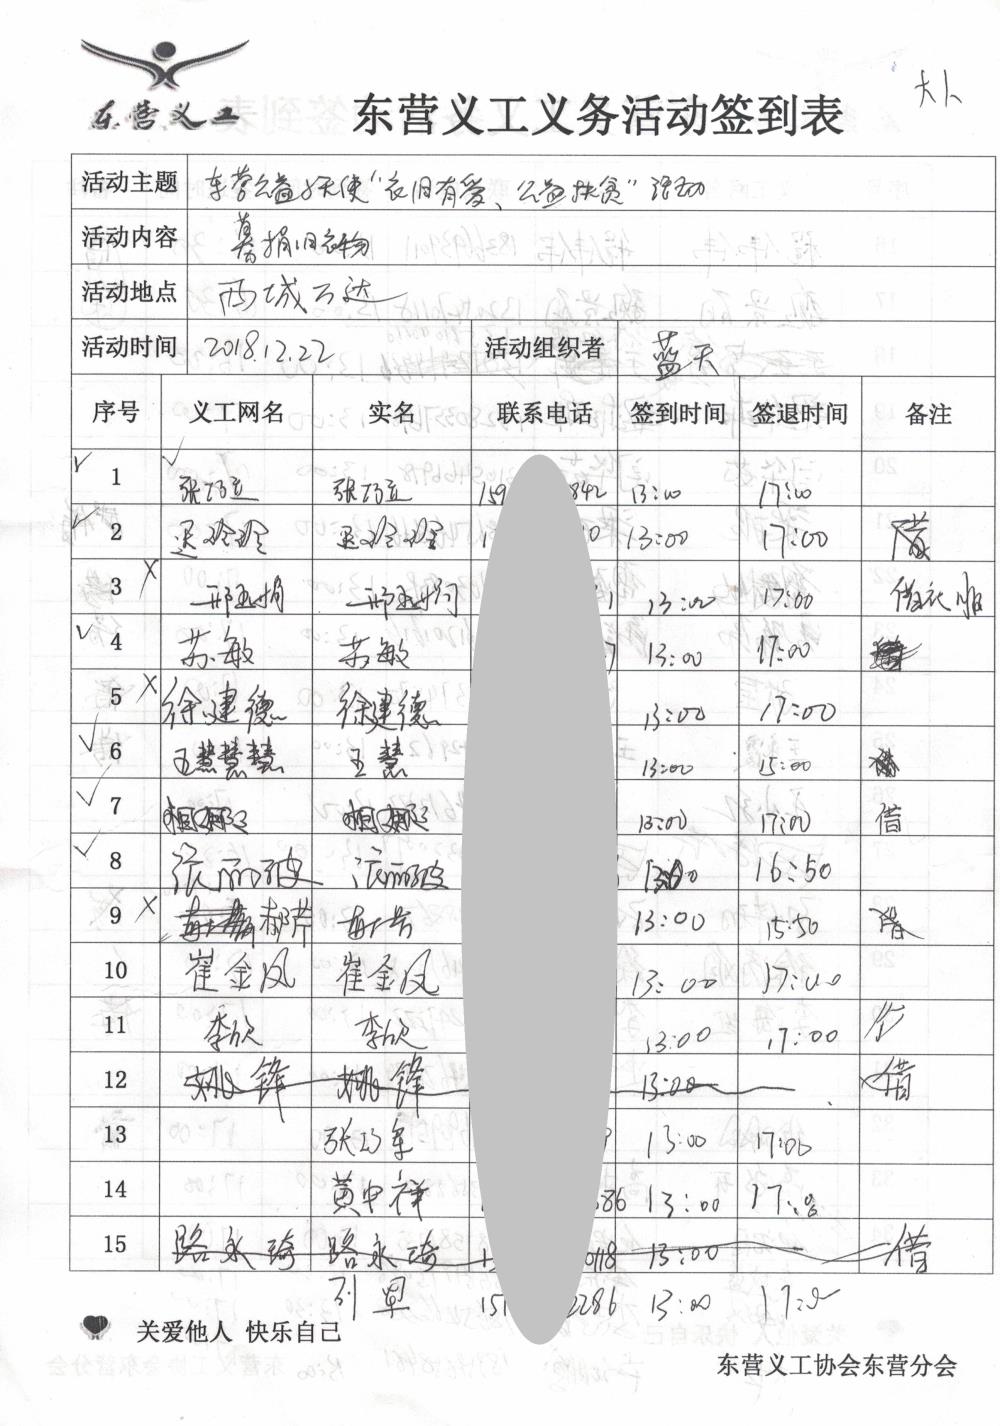 大卜
东营义工
东营义工义务活动签到表
活动主题 东营公益小天使“衣旧有爱、公益扶贫”活动
活动内容 募捐旧衣物
活动地点 西城万达
活动时间 2018.12.22 活动组织者 蓝天
序号 义工网名 实名 联系电话 签到时间 签退时间 备注
1 张巧立 张巧立 159 842 13:00 17:00
2 迟玲玲 迟玲玲 1 0 13:00 17:00 借
3 邢玉娟 邢玉娟 1 13:00 17:00 借衣服
4 苏敏 苏敏 7 13:00 17:00
5 徐建德 徐建德 13:00 17:00
6 王慧慧慧 王慧 13:00 15:00
7 13:00 17:00 借
8 张丽波 张丽波 13:00 16:50
9 13:00 15:50 借
10 崔金凤 崔金凤 13:00 17:00
11 李欣 李欣 13:00 17:00
12 姚锋 姚锋 13:00 借
13 张巧军 9 13:00 17:00
14 黄中祥 686 13:00 17:00
15 路永琦 路永琦 1 0118 13:00 借
151 2286 13:00 17:00
关爱他人 快乐自己
东营义工协会东营分会